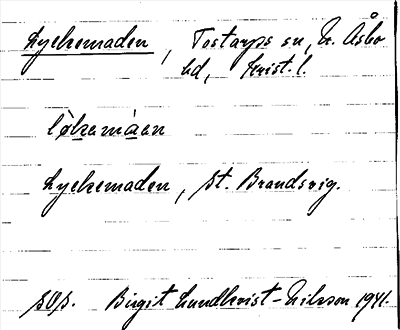 Lyckemaden, Tostarps sn, N. Åsbo
hd, Krist. l.
lø̀kemáen
Lyckemaden, st. Brandsvig.
Birgit Lundkvist-Nilsson 1941.